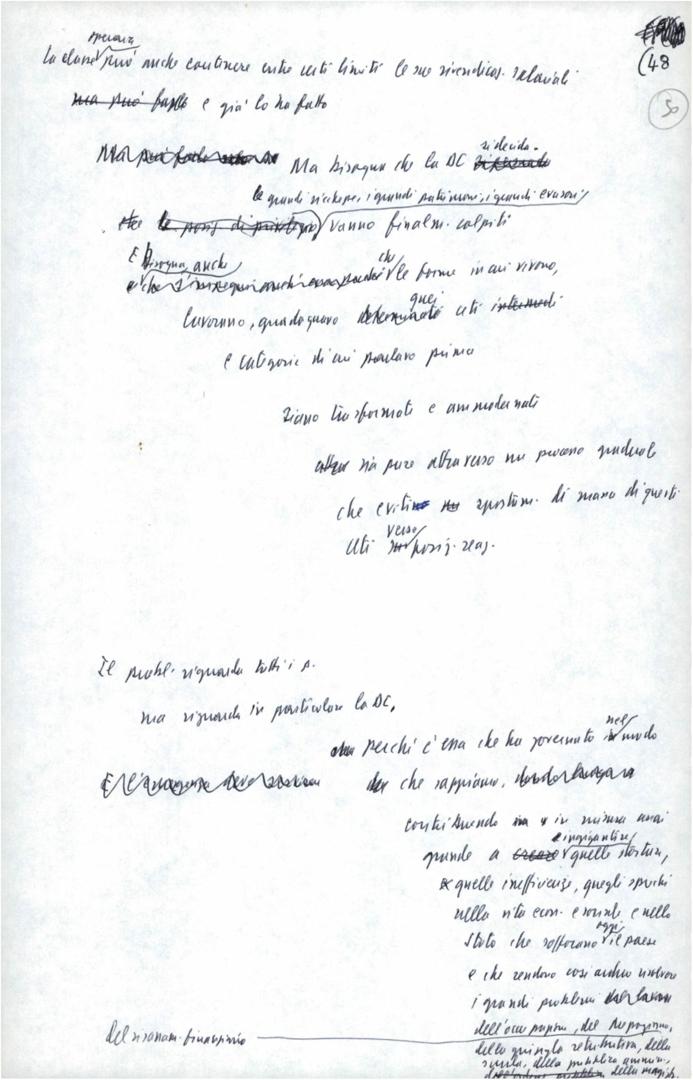 (48
50
operaia
La classe può anche contenere entro certi limiti le sue rivendicaz. salariali
ma può farlo e già lo ha fatto
Ma Ma bisogna che la DC si decida.
le grandi ricchezze, i grandi patrimoni, i grandi evasori
che le posiz. di privilegio vanno finalm. colpiti
E bisogna anche che
le forme in cui vivono,
quei
lavorano, guadagnano determinati ceti intermedi
e categorie di cui parlavo prima
siano trasformate e ammodernate
sia pure attraverso un processo graduale
che eviti spostam. di massa di questi
verso
ceti posiz. reaz.
Il probl. riguarda tutti i p.
ma riguarda in particolare la DC,
nel
perché è essa che ha governato in modo
che sappiamo,
contribuendo in misura assai
e ingigantire
grande a creare quelle storture,
quelle inefficienze, quegli sprechi
nella vita econ. e sociale e nello
oggi
Stato che soffocano il paese
e che rendono così arduo risolvere
i grandi problemi
del risanam. finanziario
dell'occupazione, del Mezzogiorno,
della giungla retributiva, della
scuola, della pubblica amminis.,
dell'ordine pubblico della magistr.